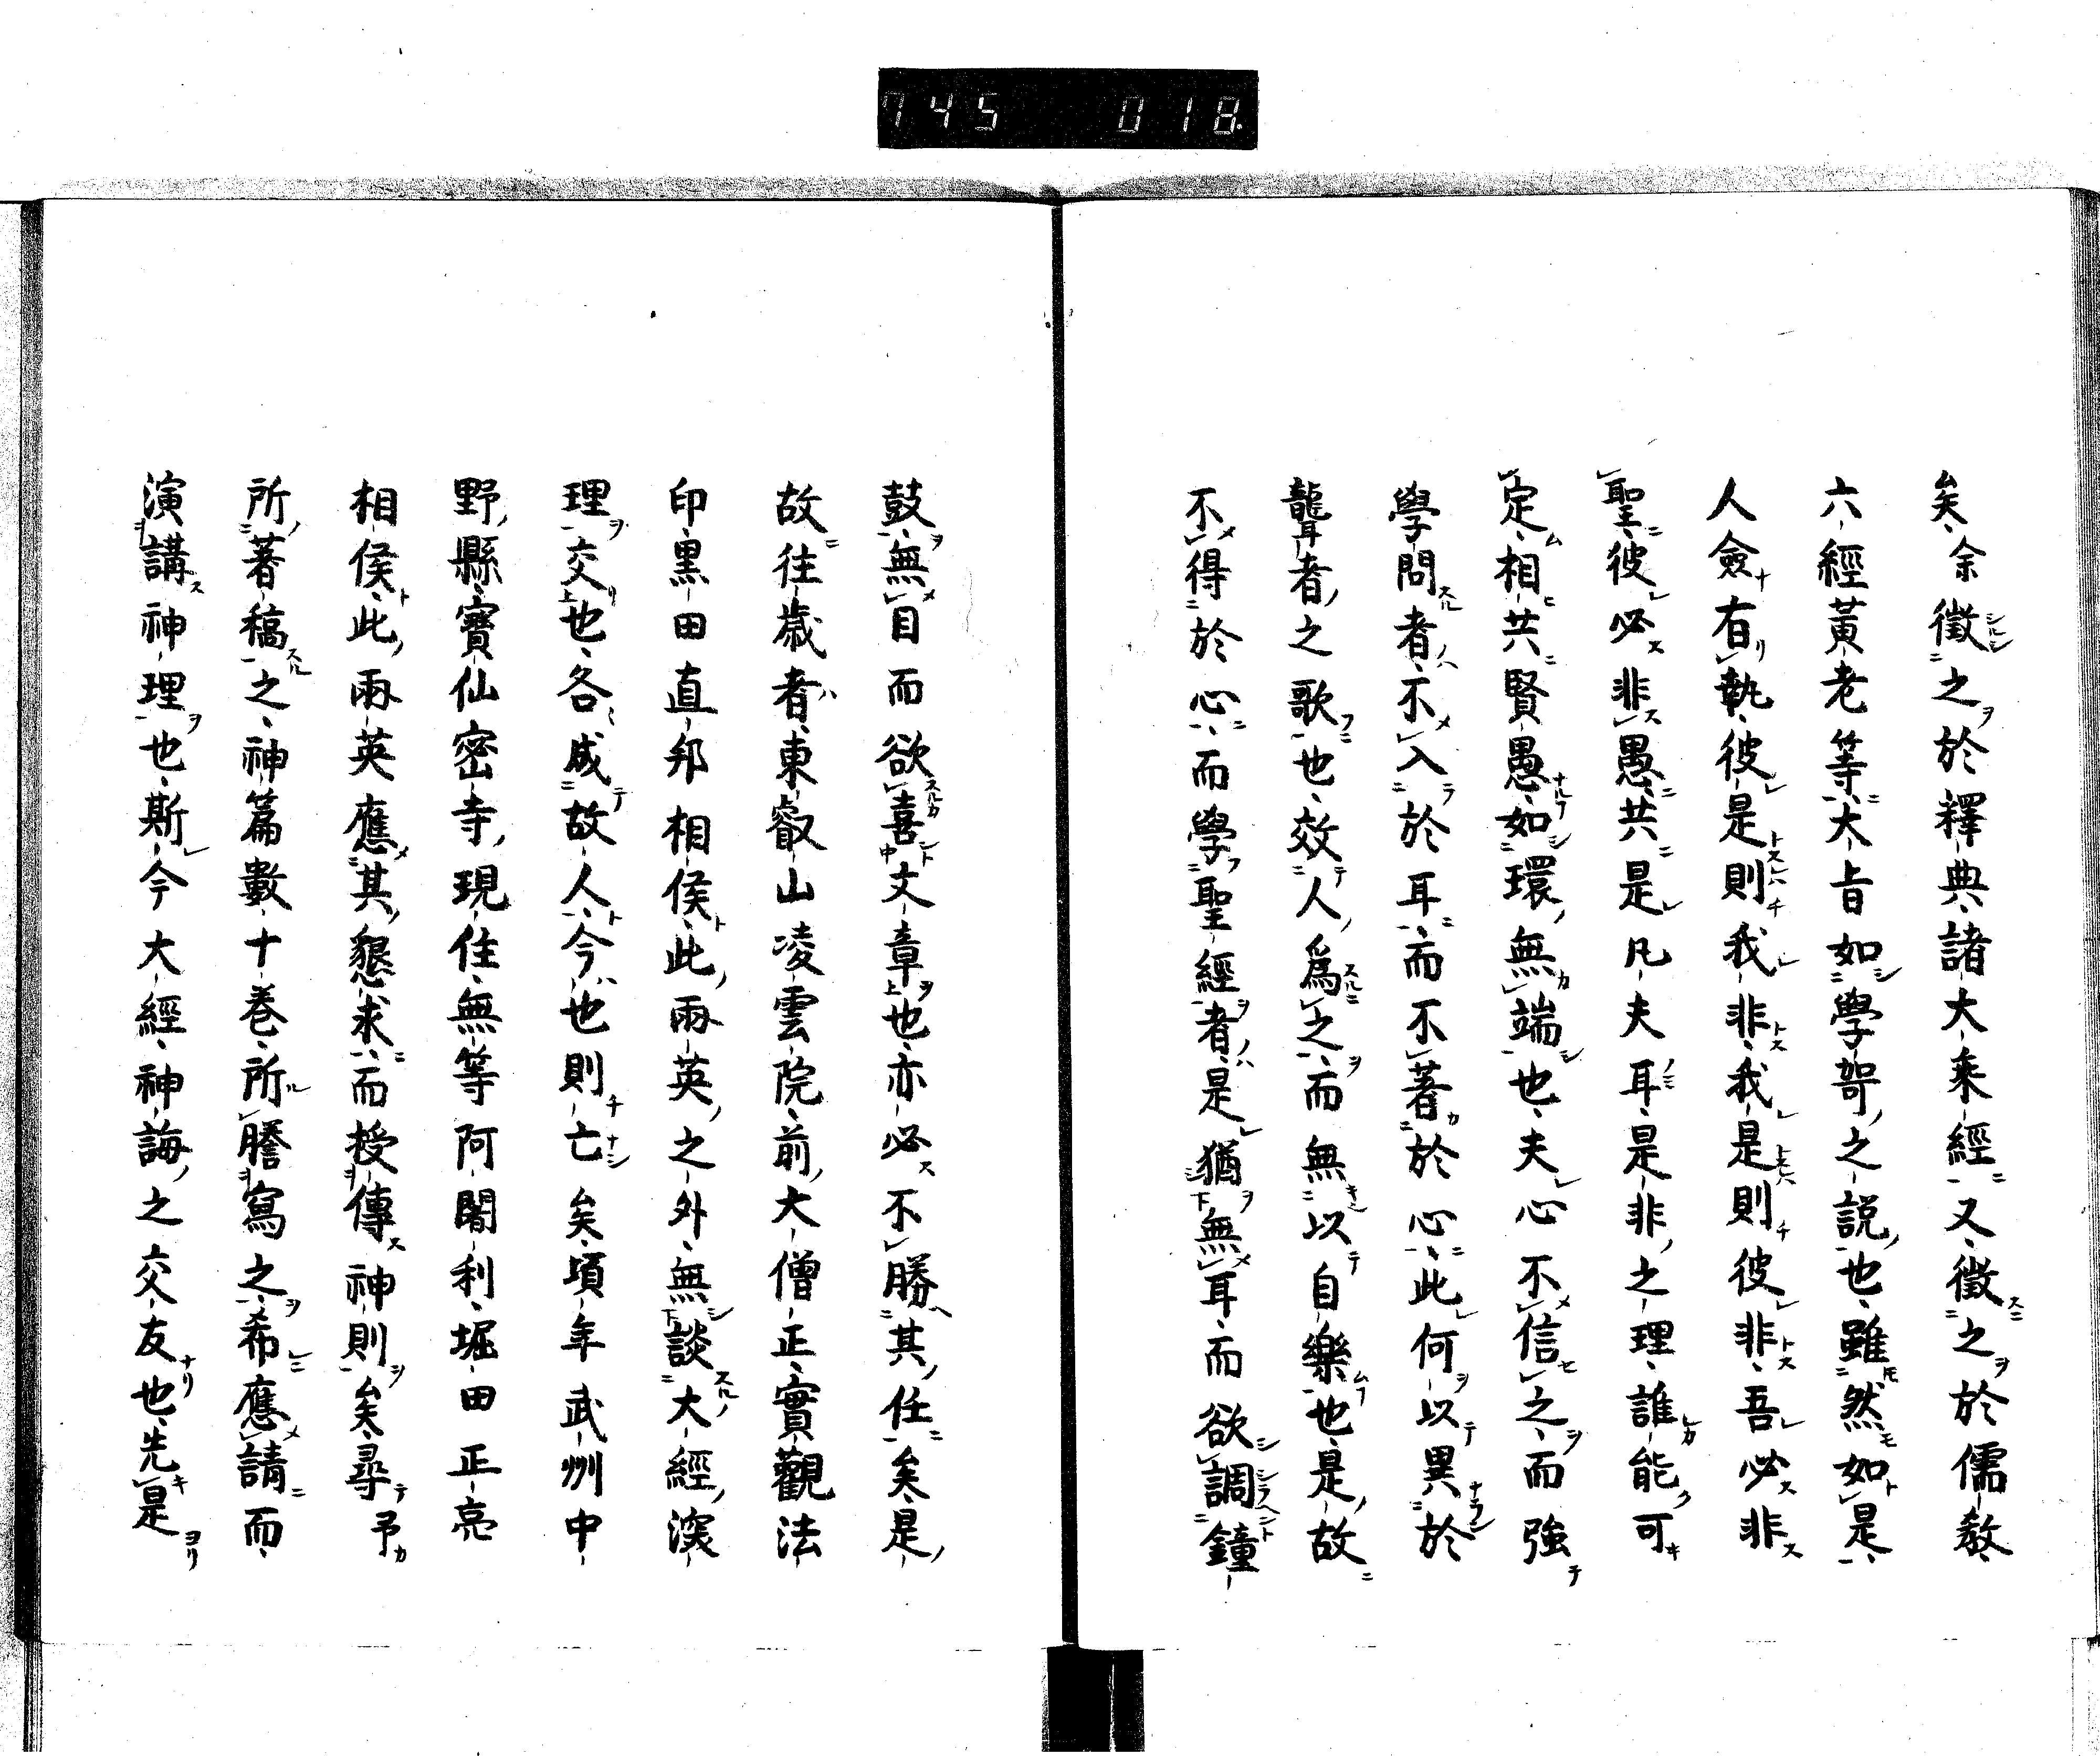 745 018
矣余徵之於釋典諸大乘經又徵之於儒教
六經黃老等大旨如學哿之説也雖然如是
人僉有執彼是則我非我是則彼非吾必非
聖彼必非愚共是凡夫耳是非之理誰能可
定相共賢愚如環無端也夫心不信之而強
學問者不入於耳而不著於心此何以異於
聾者之歌也效人爲之而無以自樂也是故
不得於心而學聖經者是猶無耳而欲調鐘
鼓無目而欲喜文章也亦必不勝其任矣是
故往歲者東叡山凌雲院前大僧正實觀法
印黒田直邦相侯此兩英之外無談大經深
理交也各成故人今也則亡矣頃年武州中
野縣寶仙密寺現住無等阿闍利堀田正亮
相侯此兩英應其懇求而授傳神則矣尋予
所著稿之神篇數十卷所謄寫之希應請而
演講神理也斯今大經神誨之交友也先是